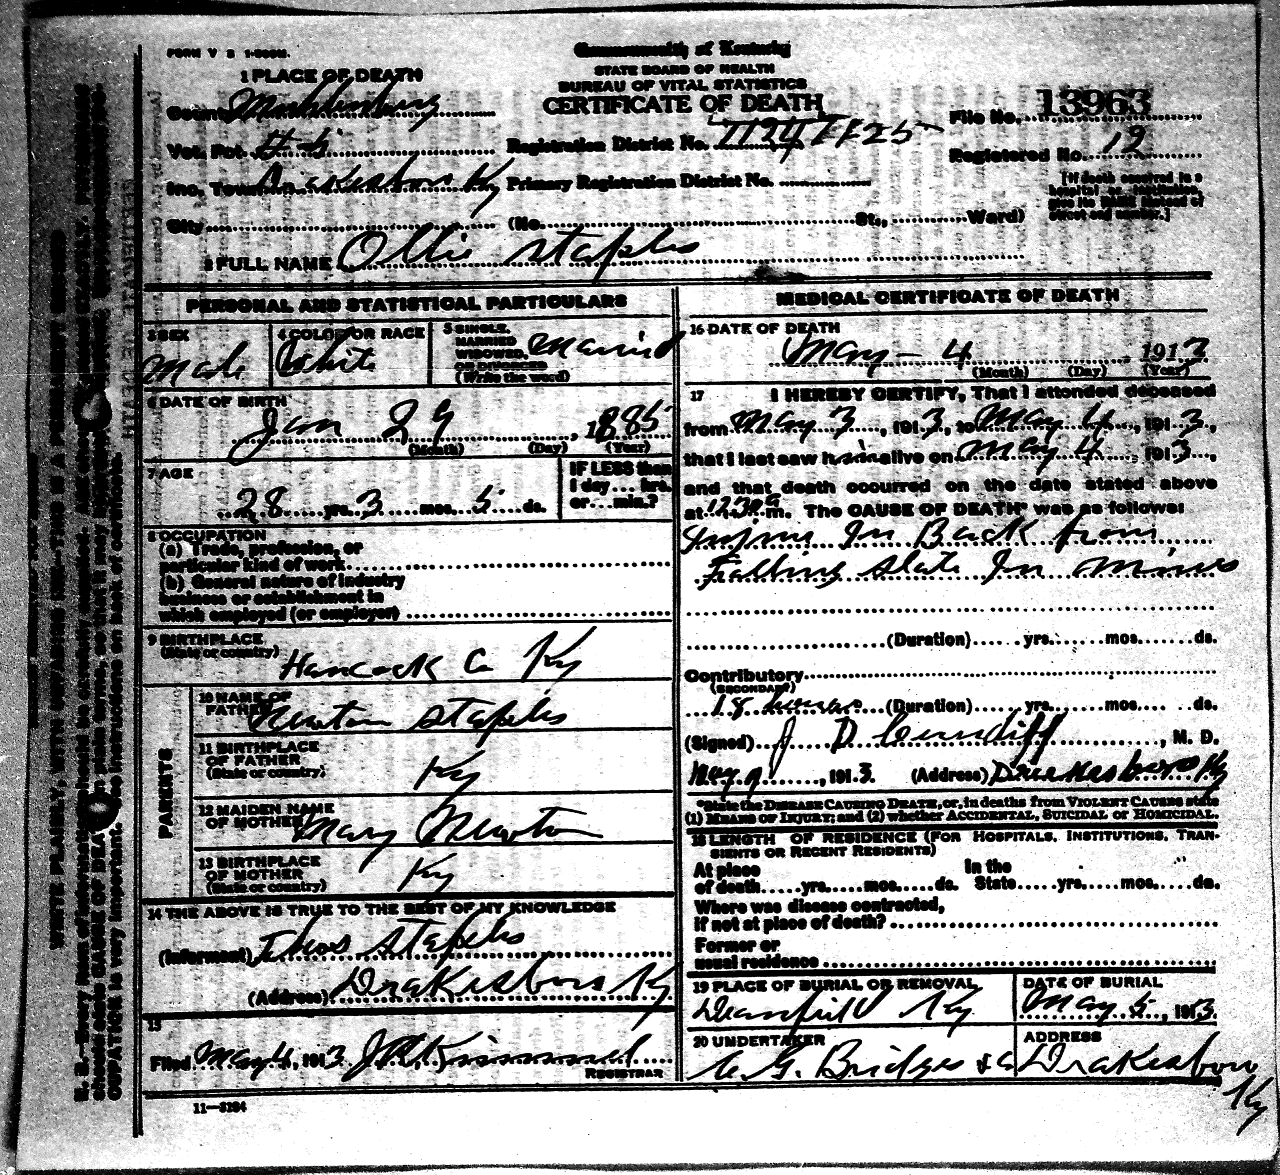 FORM V S 1-500M.
Commonwealth of Kentucky
STATE BOARD OF HEALTH
BUREAU OF VITAL STATISTICS
CERTIFICATE OF DEATH
1 PLACE OF DEATH
County Muhlenburg
Vot. Pct. # 5
Inc. Town Drakesboro Ky
City
Registration District No. 1125
Primary Registration District No.
(No. St., Ward)
File No. 13963
Registered No. 12
[If death occurred in a
hospital or institution,
give its NAME instead of
street and number.]
2 FULL NAME Ollie Staples
PERSONAL AND STATISTICAL PARTICULARS
3 SEX
Male
4 COLOR OR RACE
White
5 SINGLE,
MARRIED
WIDOWED,
OR DIVORCED
(Write the word)
Married
6 DATE OF BIRTH
Jan 29, 1885
(Month) (Day) (Year)
7 AGE
28 yrs. 3 mos. 5 ds.
IF LESS than
1 day... hrs.
or... min.?
8 OCCUPATION
(a) Trade, profession, or
particular kind of work
(b) General nature of industry
business or establishment in
which employed (or employer)
9 BIRTHPLACE
(State or country)
Hancock Co Ky
PARENTS
10 NAME OF
FATHER
Newton Staples
11 BIRTHPLACE
OF FATHER
(State or country)
Ky
12 MAIDEN NAME
OF MOTHER
Mary Newton
13 BIRTHPLACE
OF MOTHER
(State or country)
Ky
14 THE ABOVE IS TRUE TO THE BEST OF MY KNOWLEDGE
(Informant) Thos Staples
(Address) Drakesboro Ky
15
Filed May 4, 1913 J R Kimmel
REGISTRAR
11—3184
MEDICAL CERTIFICATE OF DEATH
16 DATE OF DEATH
May - 4, 1913
(Month) (Day) (Year)
17 I HEREBY CERTIFY, That I attended deceased
from May 3, 1913, to May 4, 1913,
that I last saw him alive on May 4, 1913,
and that death occurred on the date stated above
at 12:30 a m. The CAUSE OF DEATH* was as follows:
Injury In Back from
Falling slate In Mines
(Duration) yrs. mos. ds.
Contributory
(SECONDARY)
18 hours (Duration) yrs. mos. ds.
(Signed) J D Cundiff, M. D.
May 9, 1913. (Address) Drakesboro Ky
*State the DISEASE CAUSING DEATH, or, in deaths from VIOLENT CAUSES state
(1) MEANS OF INJURY; and (2) whether ACCIDENTAL, SUICIDAL or HOMICIDAL.
18 LENGTH OF RESIDENCE (FOR HOSPITALS, INSTITUTIONS, TRAN-
SIENTS OR RECENT RESIDENTS)
At place In the
of death yrs. mos. ds. State yrs. mos. ds.
Where was disease contracted,
if not at place of death?
Former or
usual residence
19 PLACE OF BURIAL OR REMOVAL
Deanfield Ky
DATE OF BURIAL
May 5, 1913.
20 UNDERTAKER
C. G. Bridges & Co
ADDRESS
Drakesboro
Ky